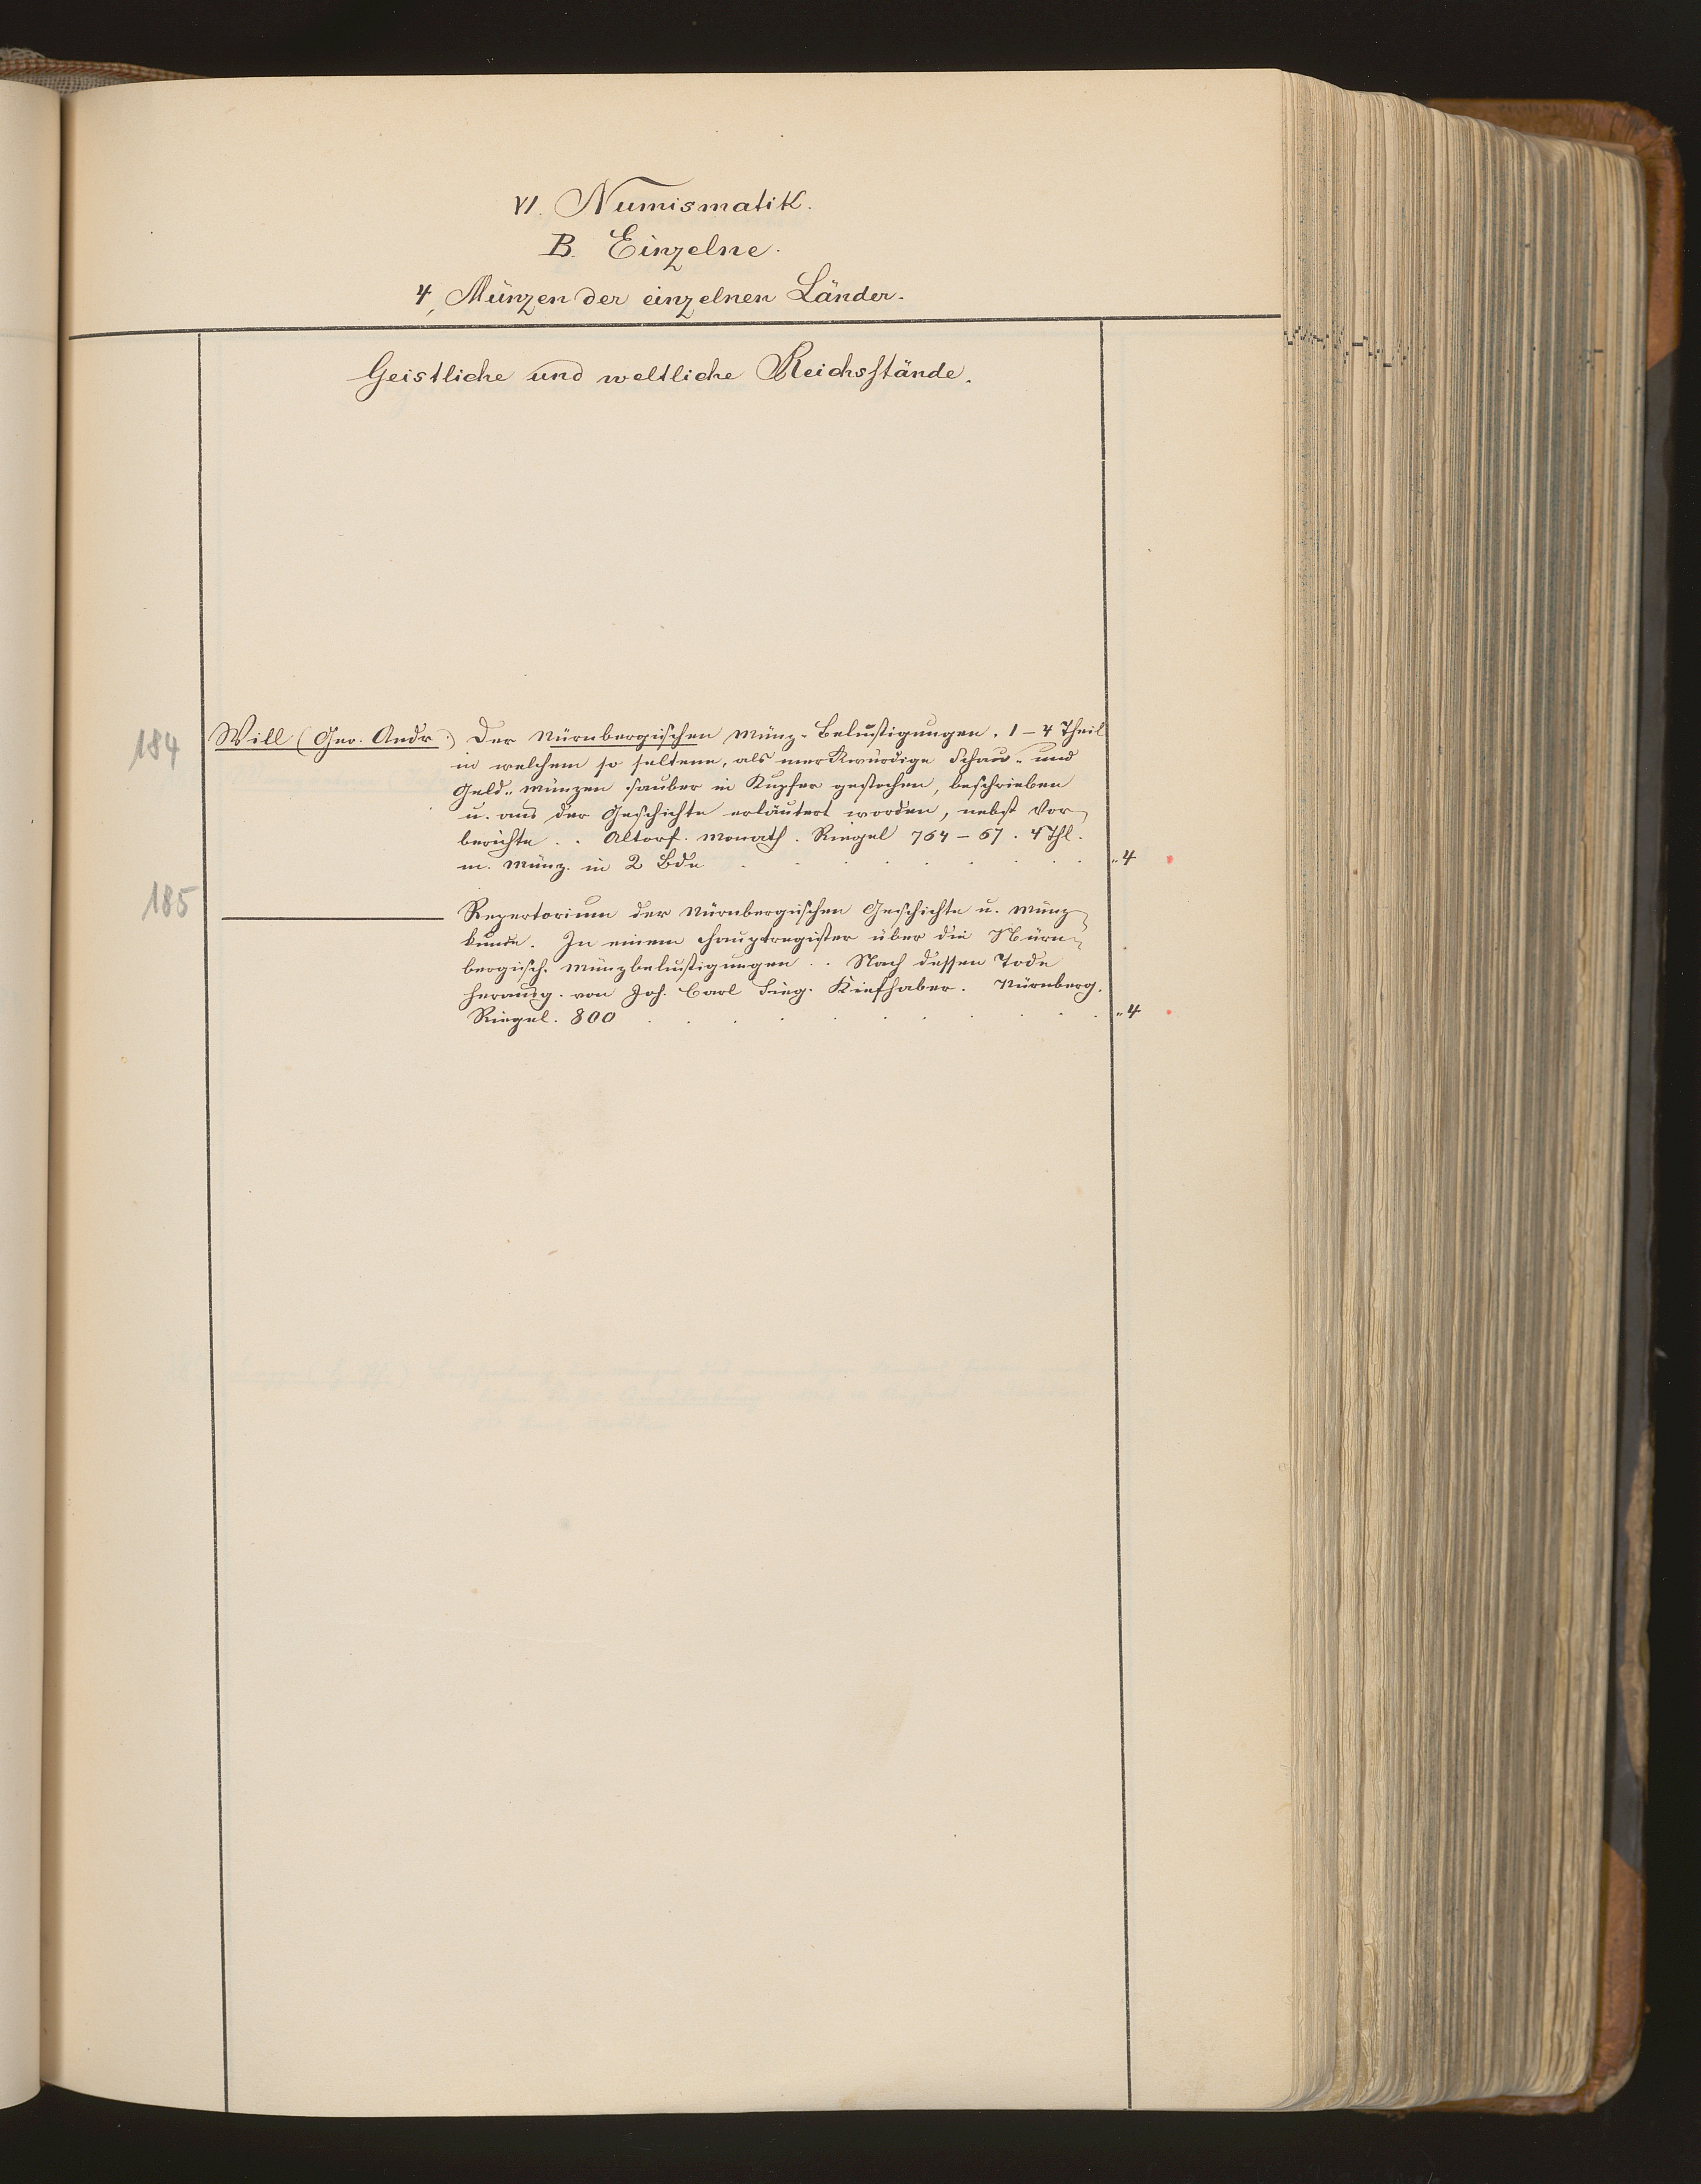 VI. Numismatik.
B. Einzelne.
4, Münzen der einzelnen Länder.
Geistliche und weltliche Reichsstände.
184 Will (Geo. Andr.) Der Nürnbergischen Münz-Belustigungen. 1–4 Theil
in welchem so seltene, als merkwürdige Schau- und
Geld-Münzen sauber in Kupfer gestochen, beschrieben
u. aus der Geschichte erläutert worden, nebst Vor-
berichte . . Altorf. Monath. Riegel 764–67. 4 Thl.
m. Münz. in 2 Bde „4
185 ——— Repertorium der Nürnbergischen Geschichte u. Münz-
kunde. In einem Hauptregister über die Nürn-
bergisch. Münzbelustigungen . . Nach dessen Tode
herausg. von Joh. Carl Sieg. Kiefhaber. Nürnberg.
Riegel. 800 „4